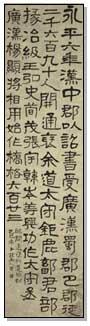 永平六年漢中郡以詔書受廣漢蜀郡巴郡徒
二千六百九十人開通褒余道太守鉅鹿鄐君部
掾冶級王弘史荀茂張宇韓岑第典功作太守丞
廣漢楊顯將相用始作橋格六百廿三